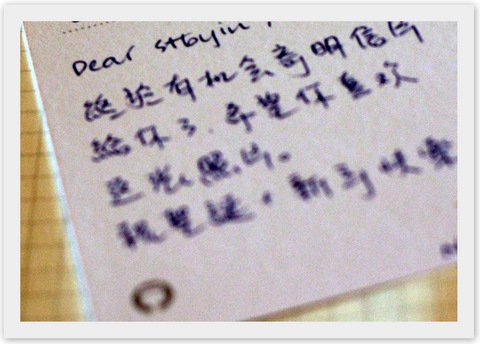 Dear stbyin
終於有机会寄明信片
給你了，希望你喜欢
這张照片。
祝聖誕，新年快樂